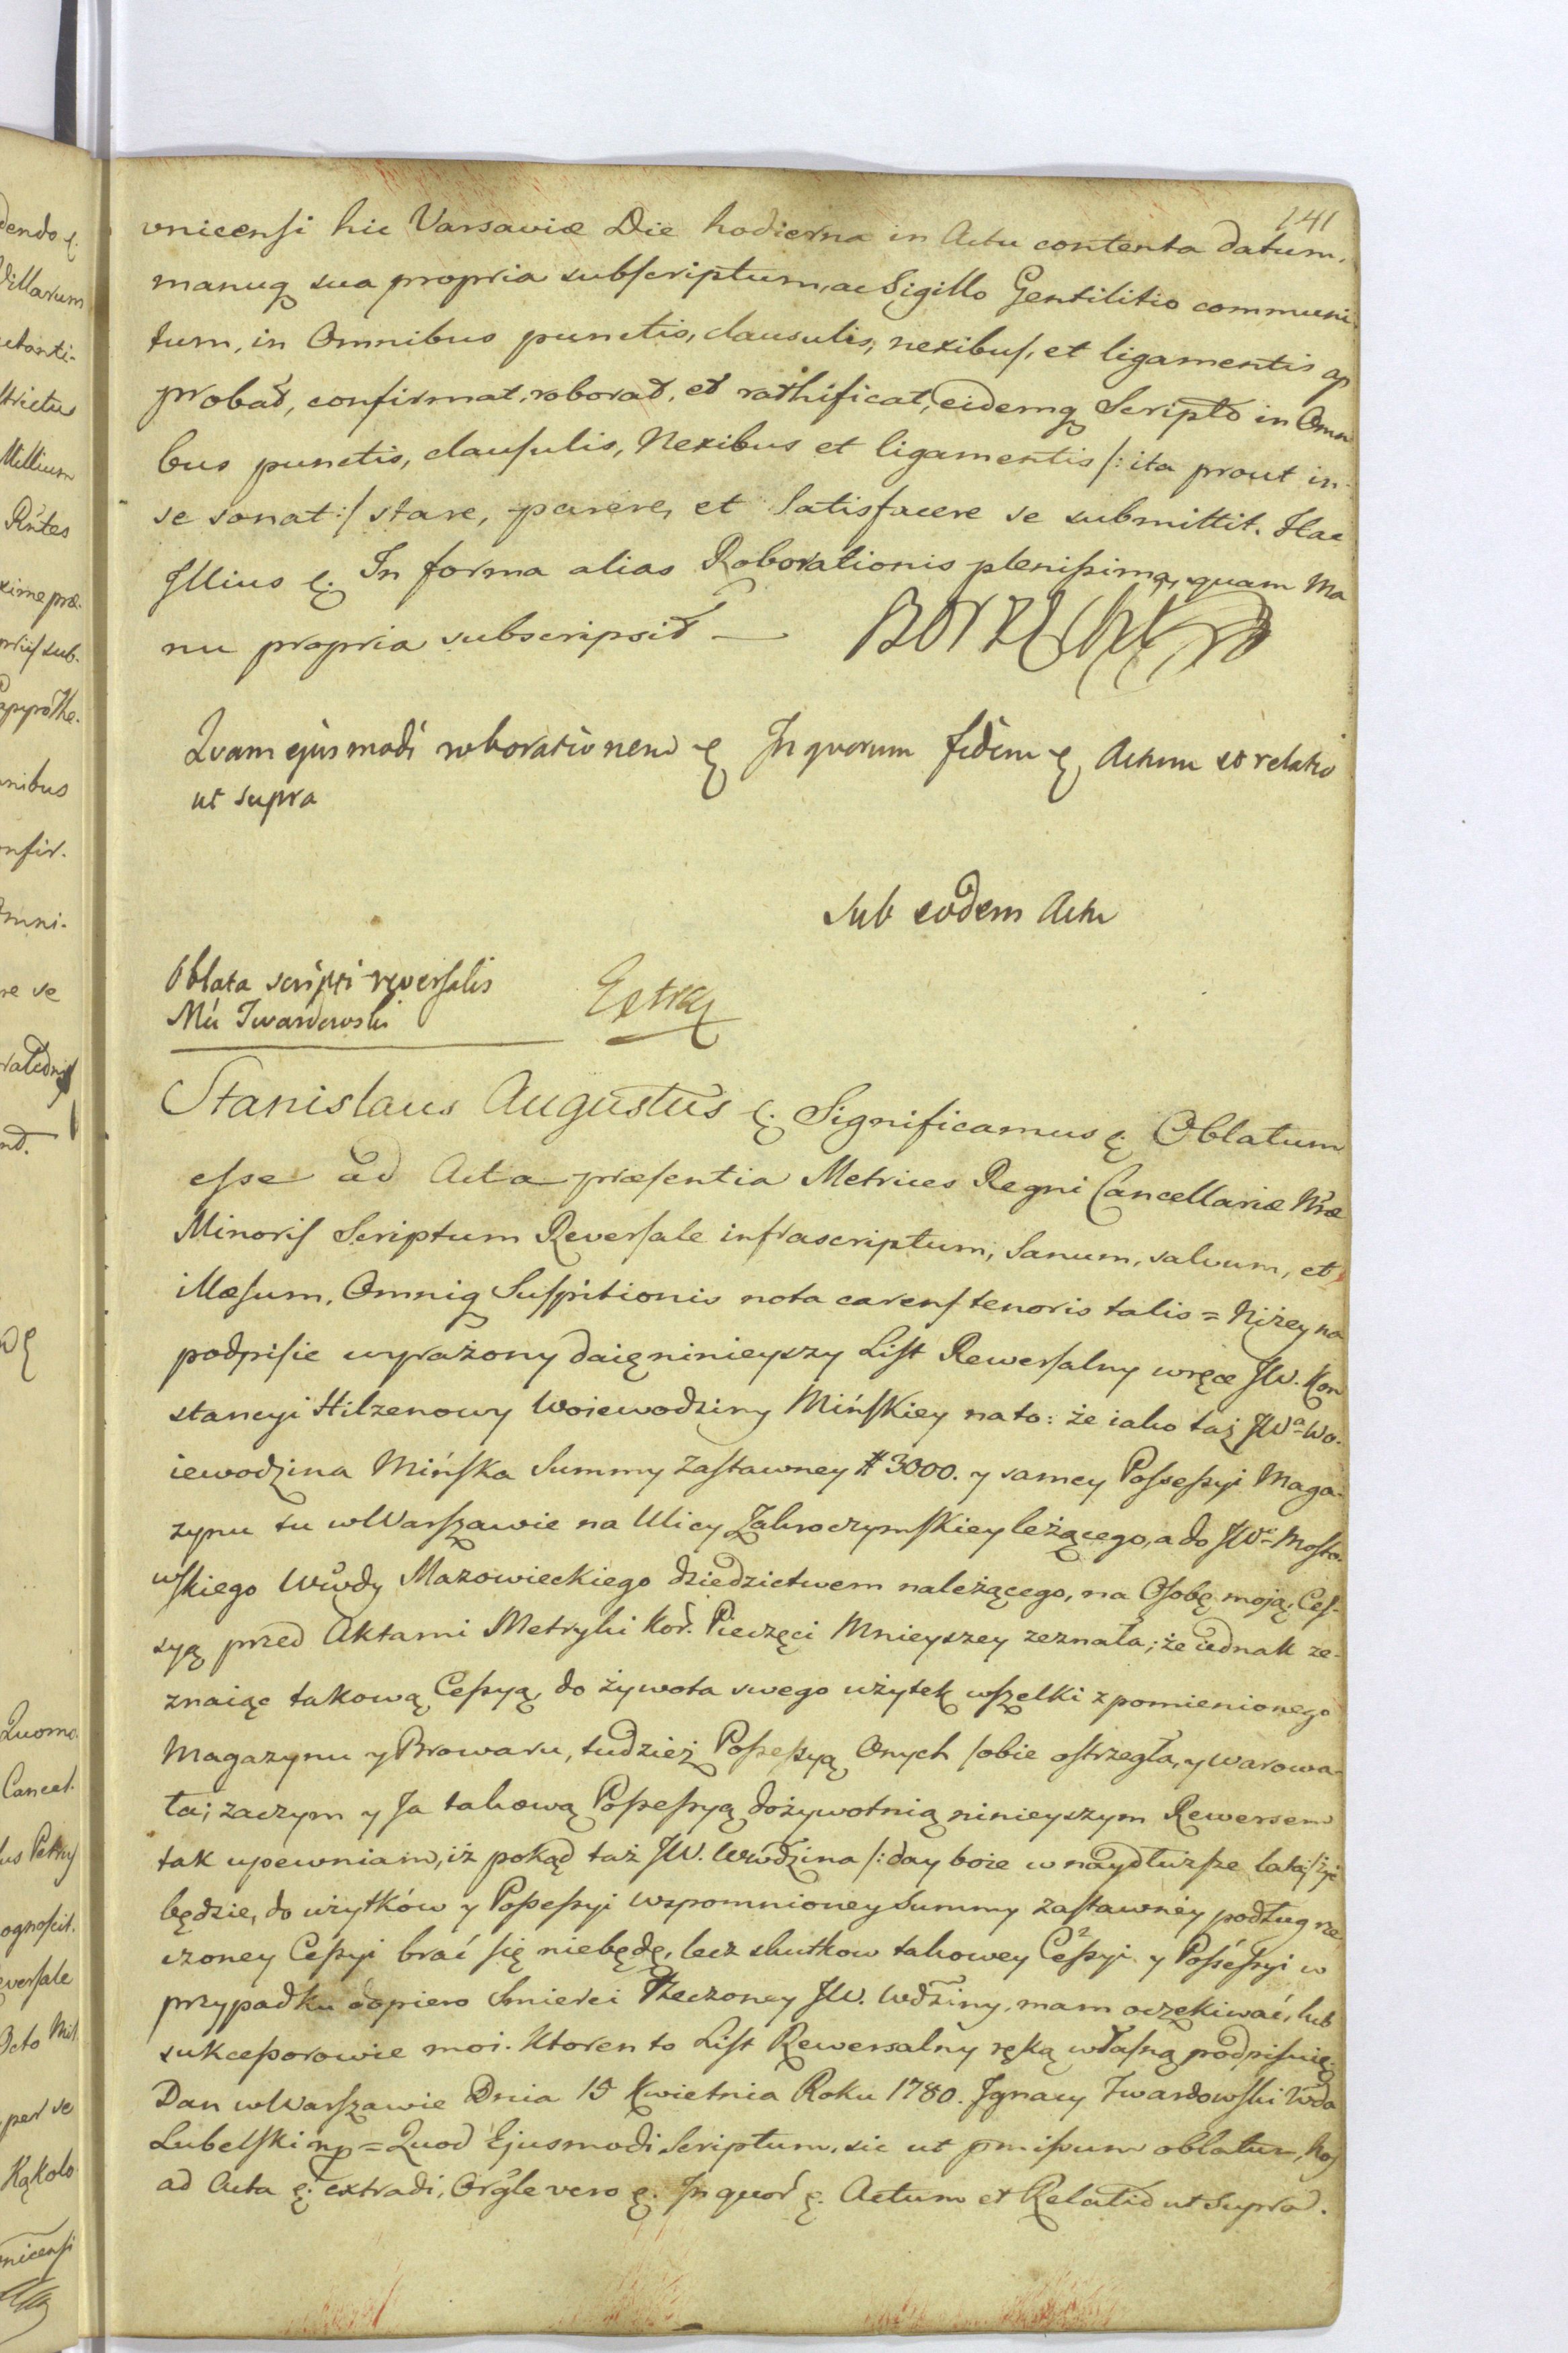 141
vnicensi hic Varsaviæ Die hodierna in Actu contenta datum,
manuq sua propria subscriptum, ac Sigillo Gentilitio communi
tum, in Omnibus punctis, clausulis, nexibus, et ligamentis ap
probat, confirmat, roborat, et rathificat, eidemq Scripto in Omni
bus punctis, clausulis, Nexibus et ligamentis /: ita prout in
se sonat :/ stare, parere, et Satisfacere se submittit. Hac
Illius &. In forma alias Roborationis plenissima, quam Ma
nu propria subscripsit —
Quam ejusmodi roborationem & In quorum fidem & Actum et relatio
ut supra
Sub eodem Actu
Oblata scripti reversalis
Mci Twardowski
Extr
Stanislaus Augustus &. Significamus &. Oblatum
esse ad Acta præsentia Metrices Regni Cancellariæ Nræ
Minoris Scriptum Reversale infrascriptum, Sanum, salvum, et
illæsum, Omniq Suspitionis nota carens tenoris talis = Niżey na
podpisie wyrażony daię ninieyszy List Rewersalny w ręce JW. Kon
stancyi Hilzenowy Woiewodziny Mińskiey na to: że iako taż JWa Wo-
iewodzina Mińska Summy Zastawney # 3000. y samey Possessyi Maga-
zynu tu w Warszawie na Ulicy Zakroczymskiey leżącego, a do JWo Mosto-
wskiego Wwdy Mazowieckiego dziedzictwem należącego, na Osobę moją, Ces-
syą przed Aktami Metryki Kor. Pieczęci Mnieyszey zeznała; że iednak ze-
znaiąc takową Cessyą, do żywota swego użytek wszelki z pomienionego
Magazynu y Browaru, tudzież Possessyą Onych sobie ostrzegła, y warowa-
ła; zaczym y Ja takową Possessyą dożywotnią ninieyszym Rewersem
tak upewniam, iż pokąd taż JW. Wwdzina /: day boże w naydłuższe lata :/ żyć
będzie, do użytków y Possessyi wspomnioney Summy zastawney podług rze
czoney Cessyi brać się niebędę, lecz skutkow takowey Cessyi y Possessyi w
przypadku dopiero Smierci Rzeczoney JW. Wdziny, mam oczekiwać, lub
sukcessorowie moi. Ktoren to List Rewersalny ręką własną podpisuię.
Dan w Warszawie Dnia 15 Kwietnia Roku 1780. Jgnacy Twardowski Wda
Lubelski mp = Quod Ejusmodi Scriptum, sic ut pmissum oblatum, Nos
ad Acta &. extradi, Orgle vero &. In quor &. Actum et Relatio ut Supra.